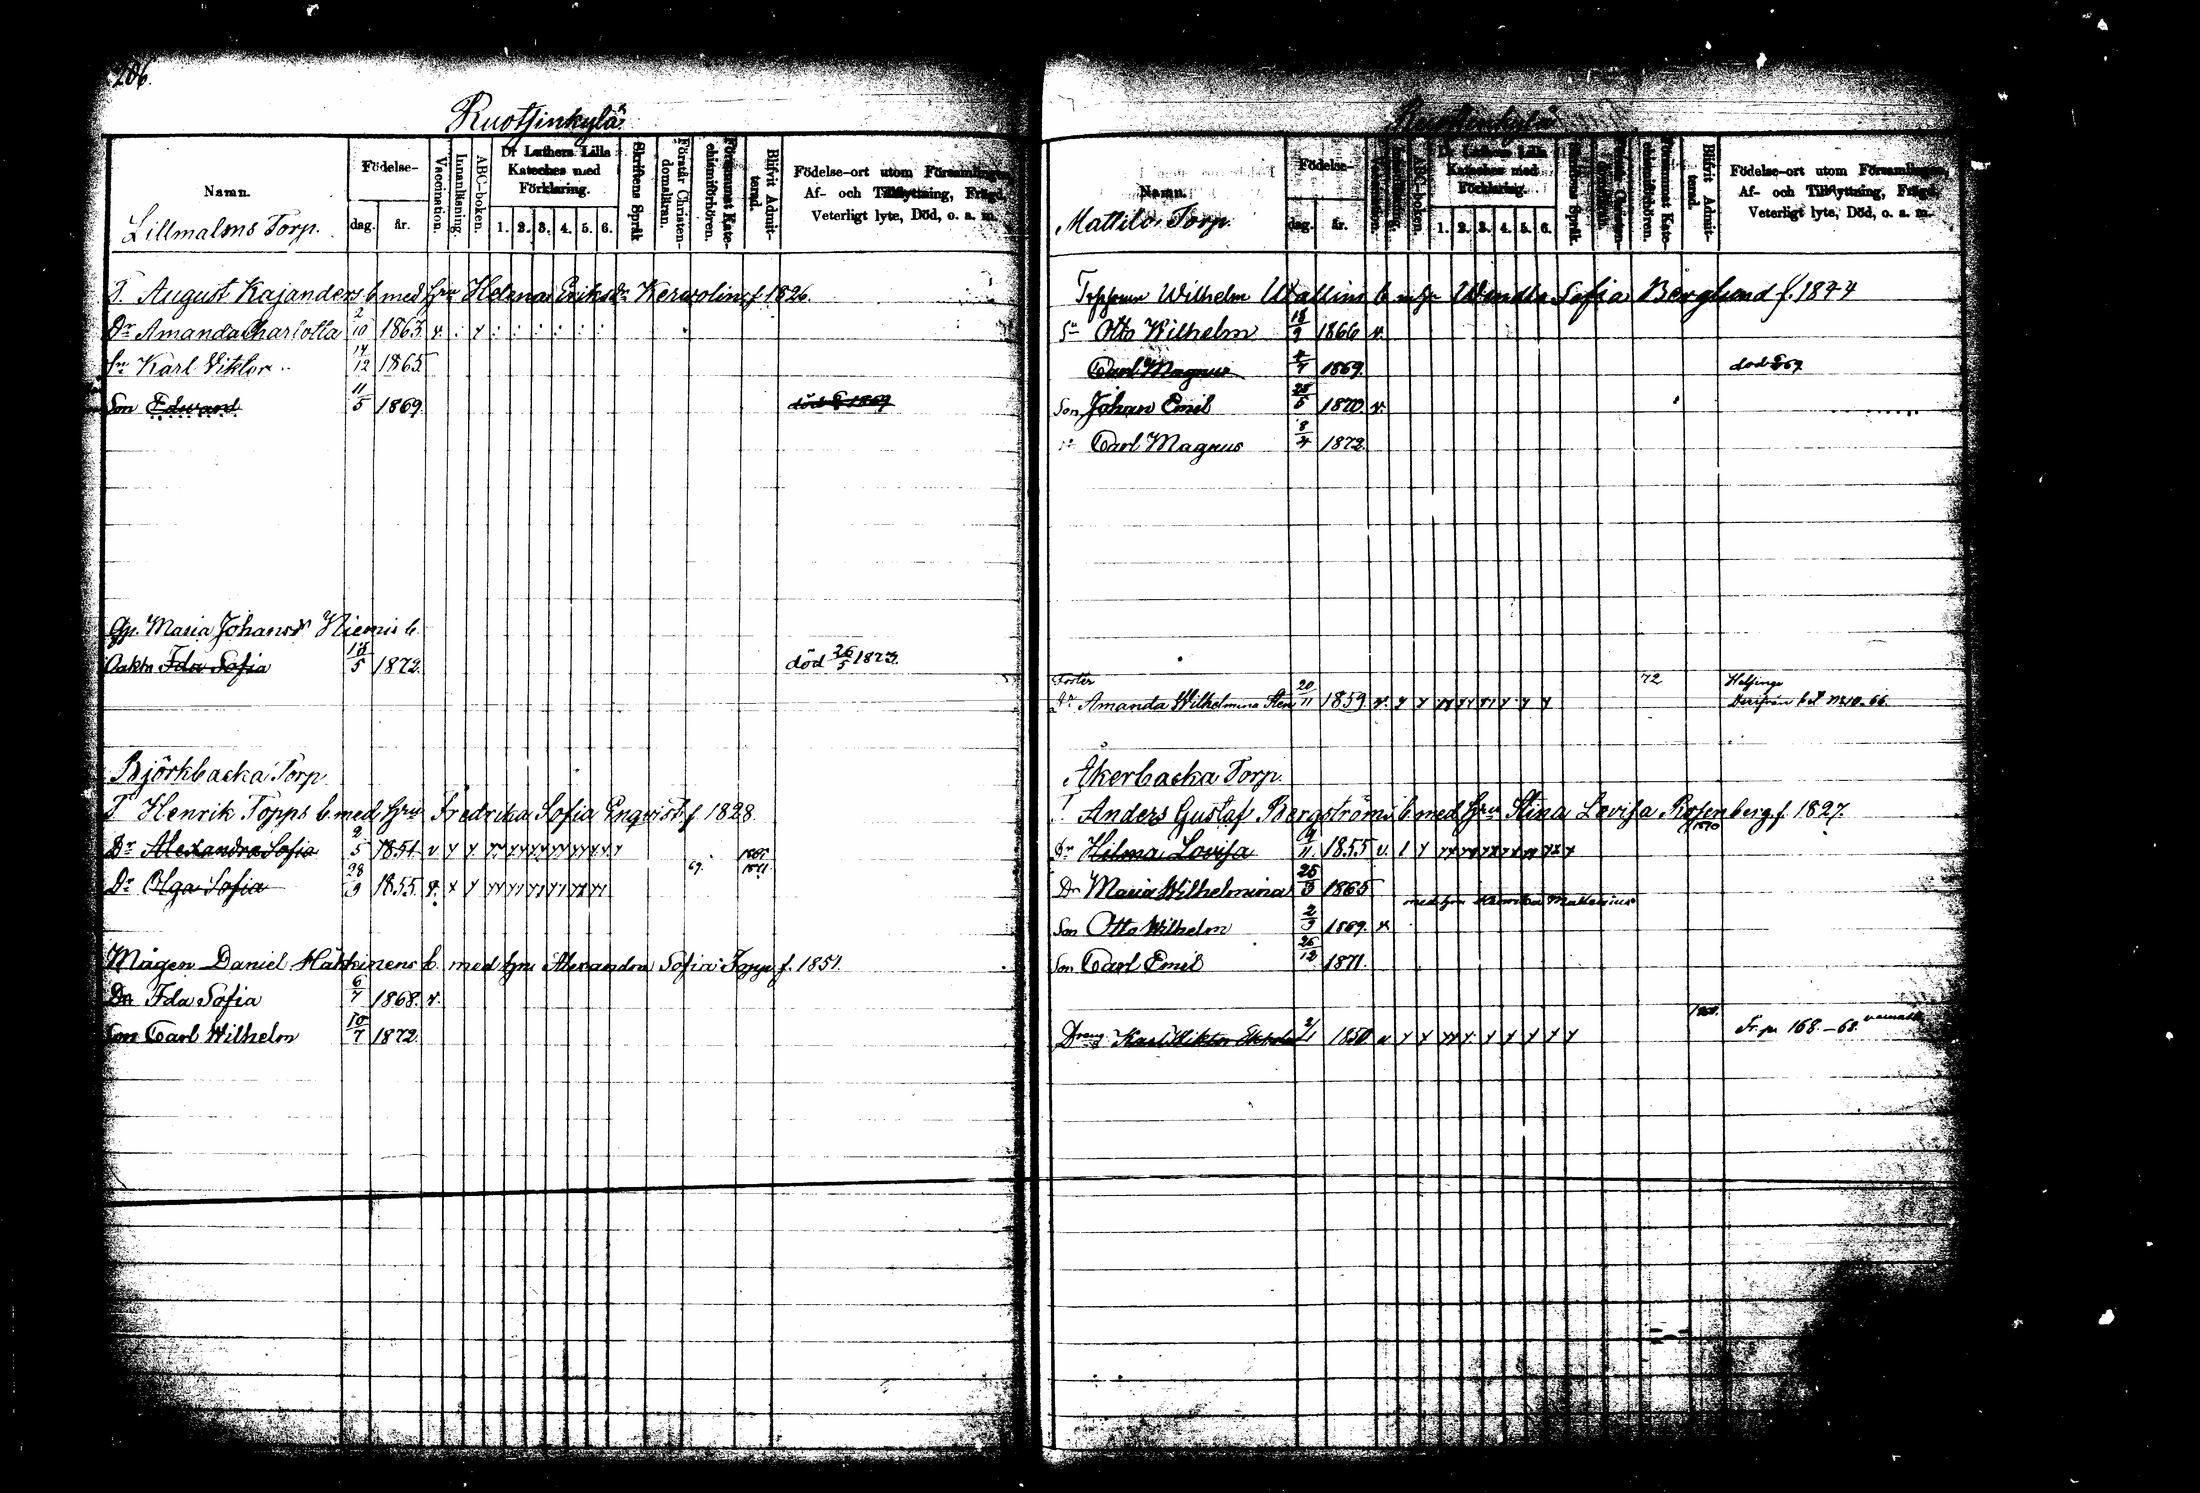 206.
Ruotsinkylä
Namn.
Födelse-
dag.
år.
Vaccination.
Innanläsning.
ABC-boken.
Dr Luthers Lilla Kateches med Förklaring.
1. 2. 3. 4. 5. 6.
Skriftens Språk
Förstår Christendomsläran.
Försummat Katechismiförhören.
Blifvit Admittend.
Födelse-ort utom Församlingen, Af- och Tillflyttning, Frägd, Veterligt lyte, Död, o. a. m.
Lillmalms Torp.
T. August Kajanders b med hru Helena Eriksdr f 1826.
Dr Amanda Charlotta 2/10 1863. v.
Sn Karl Viktor 14/12 1865.
Son Edvard 11/5 1869. död 1869
Maria Johansdr Niemis b.
Oäkta Ida Sofia 13/5 1872. död 26/5 1873.
Björkbacka Torp
T Henrik Topps b med hru Fredrika Sofia Enqvist f 1828.
Dr Alexandra Sofia 2/5 1851. v
Dr Olga Sofia 28/9 1855. v. 69. 1871.
Mågen Daniel Häkkinens b. med hru Alexandra Sofia Topp f. 1851.
Dn Ida Sofia 6/7 1868. v.
Son Carl Wilhelm 10/7 1872.
Ruotsinkylä
Namn.
Födelse-
dag.
år.
Vaccination.
Innanläsning.
ABC-boken.
Dr Luthers Lilla Kateches med Förklaring.
1. 2. 3. 4. 5. 6.
Skriftens Språk.
Förstår Christendomsläran.
Försummat Katechismiförhören.
Blifvit Admittend.
Födelse-ort utom Församlingen, Af- och Tillflyttning, Frägd, Veterligt lyte, Död, o. a. m.
Mattila Torp.
Wilhelm Wallins b m hr Wendla Sofia Berglund f. 1844
Sn Otto Wilhelm 18/9 1866 v.
Carl Magnus 4/7 1869. död 69
Son Johan Emil 25/5 1870. v.
Sn Carl Magnus 8/4 1872.
Foster
Dr Amanda Wilhelmina Sten 20/11 1859 v. 72 Helsinge
Derifrån
Åkerbacka Torp.
T Anders Gustaf Bergströms b med hru Stina Lovisa Rosenberg f. 1827.
1870
Dr Hilma Lovisa 9/11. 1855 v.
Dr Maria Wilhelmina 25/3 1865
Son Otto Wilhelm 2/3 1869. v
Son Carl Emil 26/12 1871.
Dreng Karl Viktor 2/1 1850 v 1868. Fr. pa 168-68.